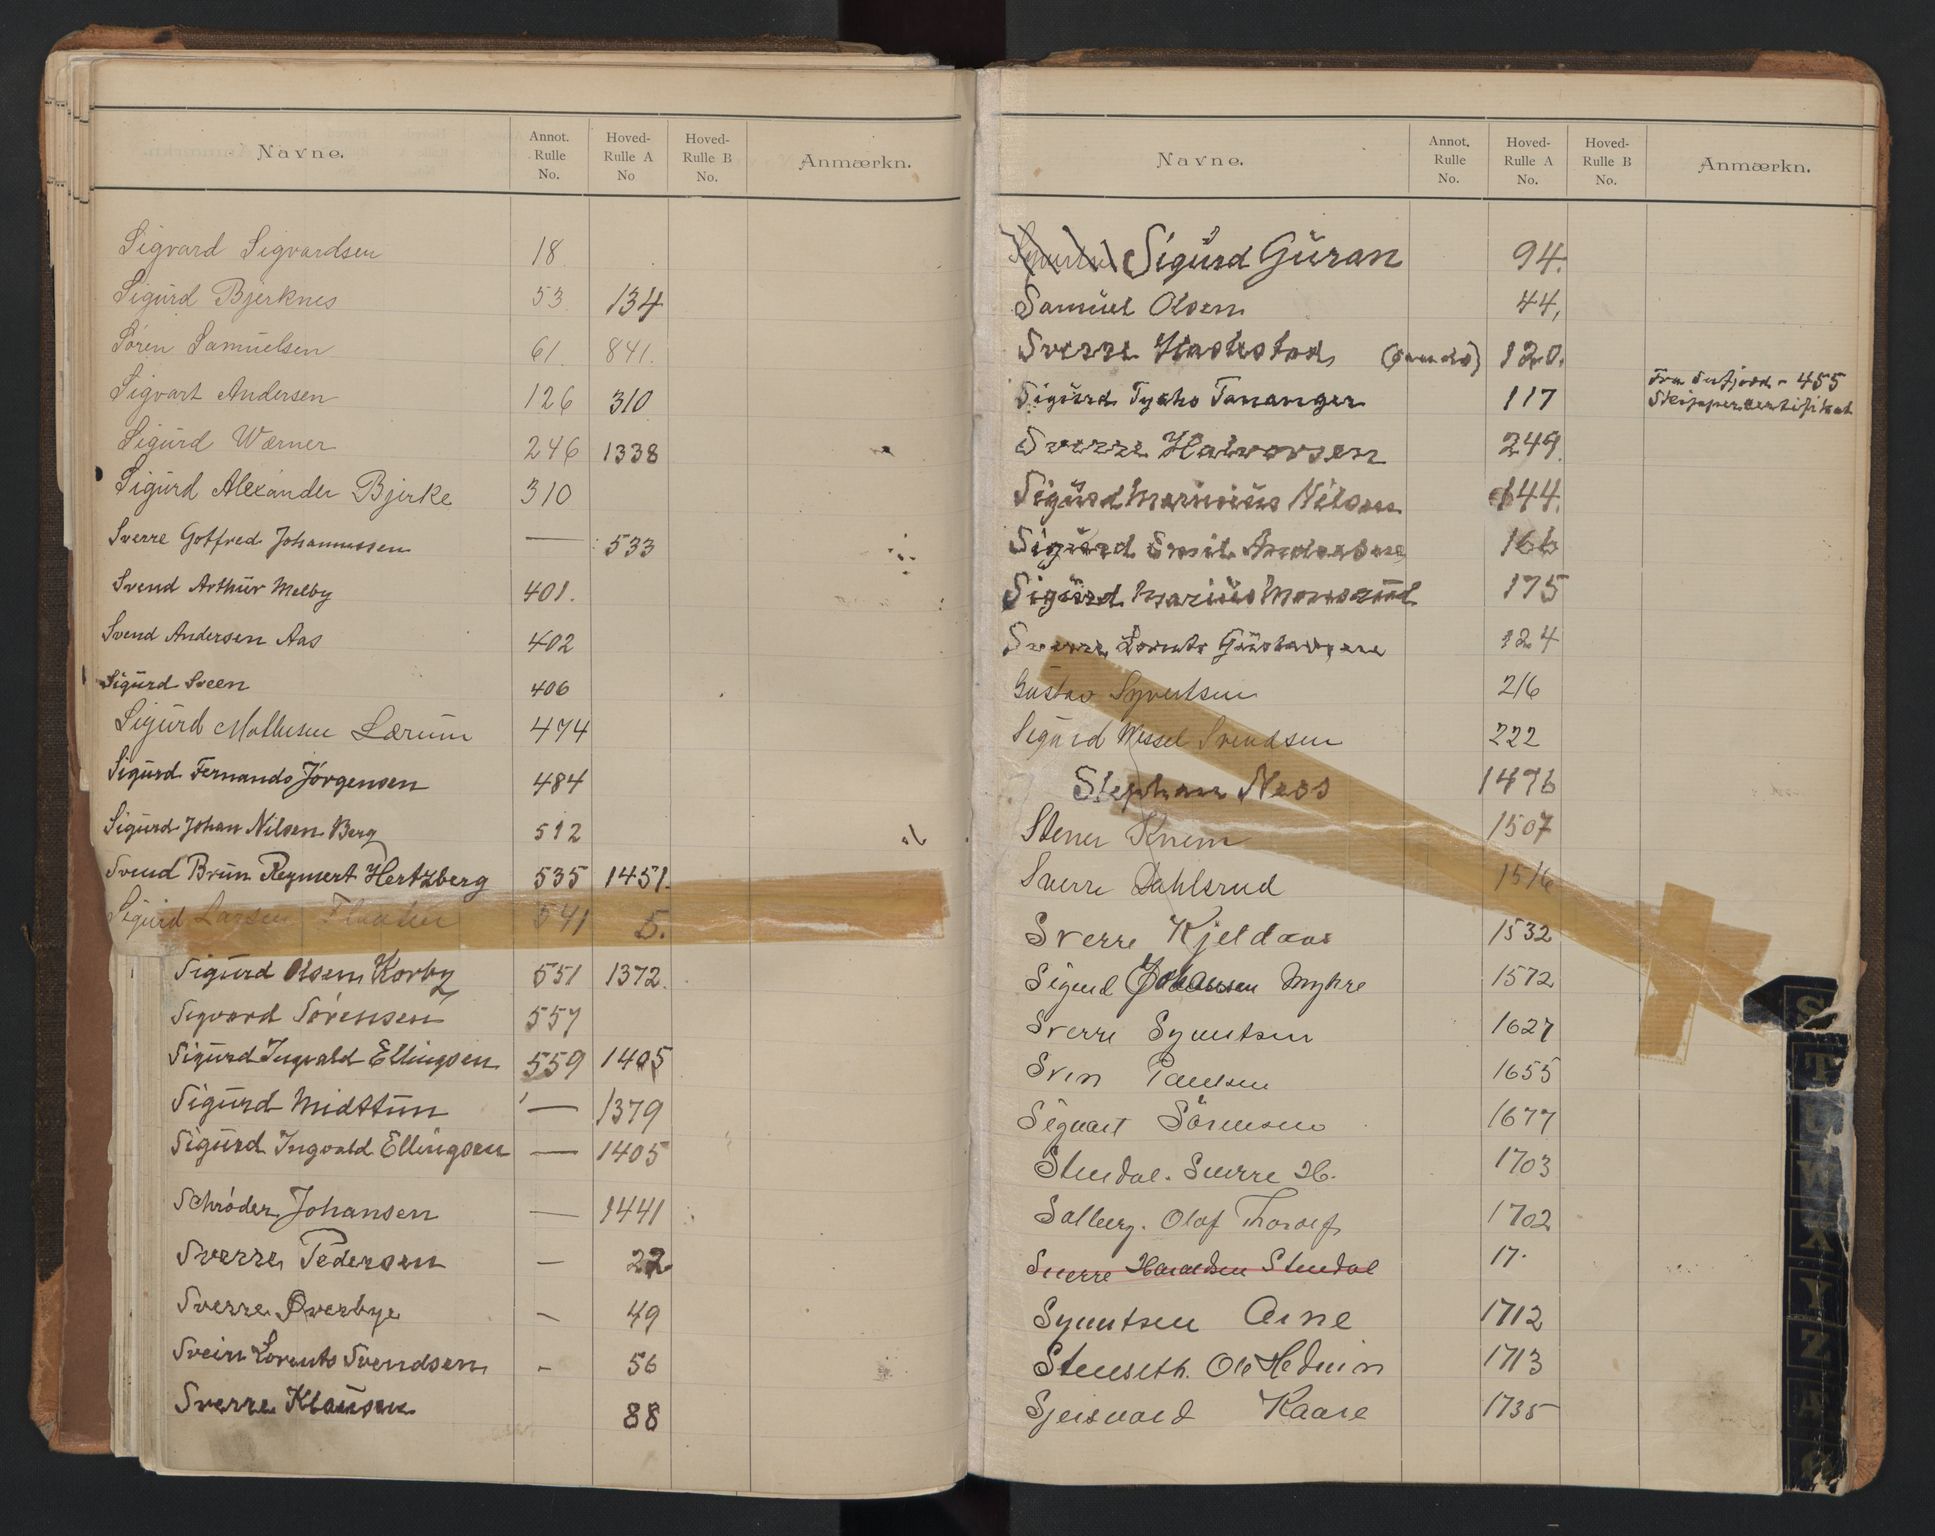 Navne. Annot. Rulle No. Hoved-Rulle A No Hoved-Rulle B No. Anmærkn.
Sigvard Sigvardsen 18
Sigurd Bjerknes 53 134
Sören Samuelsen 61. 841.
Sigvart Andersen 126 310
Sigurd Wærner 246 1338
Sigurd Alexander Bjerke 310
Sverre Gotfred Johannessen — 533
Svend Arthur Melby 401.
Svend Andersen Aas 402
Sigurd Sveen 406
Sigurd Mathisen Lærum 474
Sigurd Fernando Jørgensen 484
Sigurd Johan Nilsen Berg 512
Svend Brun Reymert Hertzberg 535 1451.
Sigurd Larsen 541 5.
Sigurd Olsen Korby 551 1372.
Sigvard Sørensen 557
Sigurd Ingvald Ellingsen 559 1405
Sigurd Midttun — 1379
Sigurd Ingvald Ellingsen — 1405
Schrøder Johansen — 1441
Sverre Pedersen — 22
Sverre Øverbye — 49
Svein Lorents Svendsen — 56
Sverre Klausen 88
Navne. Annot. Rulle No. Hoved-Rulle A No. Hoved-Rulle B No. Anmærkn.
Sigurd Guran 94.
Samuel Olsen 44,
Sverre 120.
Sigurd Tycho Tananger 117 Fra - 455
Skippercertifikat
Sverre Halvorsen 249.
Sigurd Marinius Nilsen 144.
Sigurd Emil Andersen 166
Sigurd Marius Monsrud 175
Sverre Lorentz Gustavsen 124
Gustav Syvertsen 216
Sigurd Wessel Svendsen 222
Stephan Næss 1476
Stener Knem 1507
Sverre Dahlsrud 1516
Sverre Kjeldaas 1532
Sigurd Johansen Myhre 1572
Sverre Syvertsen 1627
Svein Paulsen 1655
Sigvart Sörensen 1677
Stendal. Sverre H. 1703
Solberg. Olaf Thorolf 1702
Sverre Haraldsen Stendal 17.
Syvertsen Arne 1712
Stenseth. Ole Hedvin 1713
Sjersvold Kaare 1735
S
T
U
W
X
Y
Z